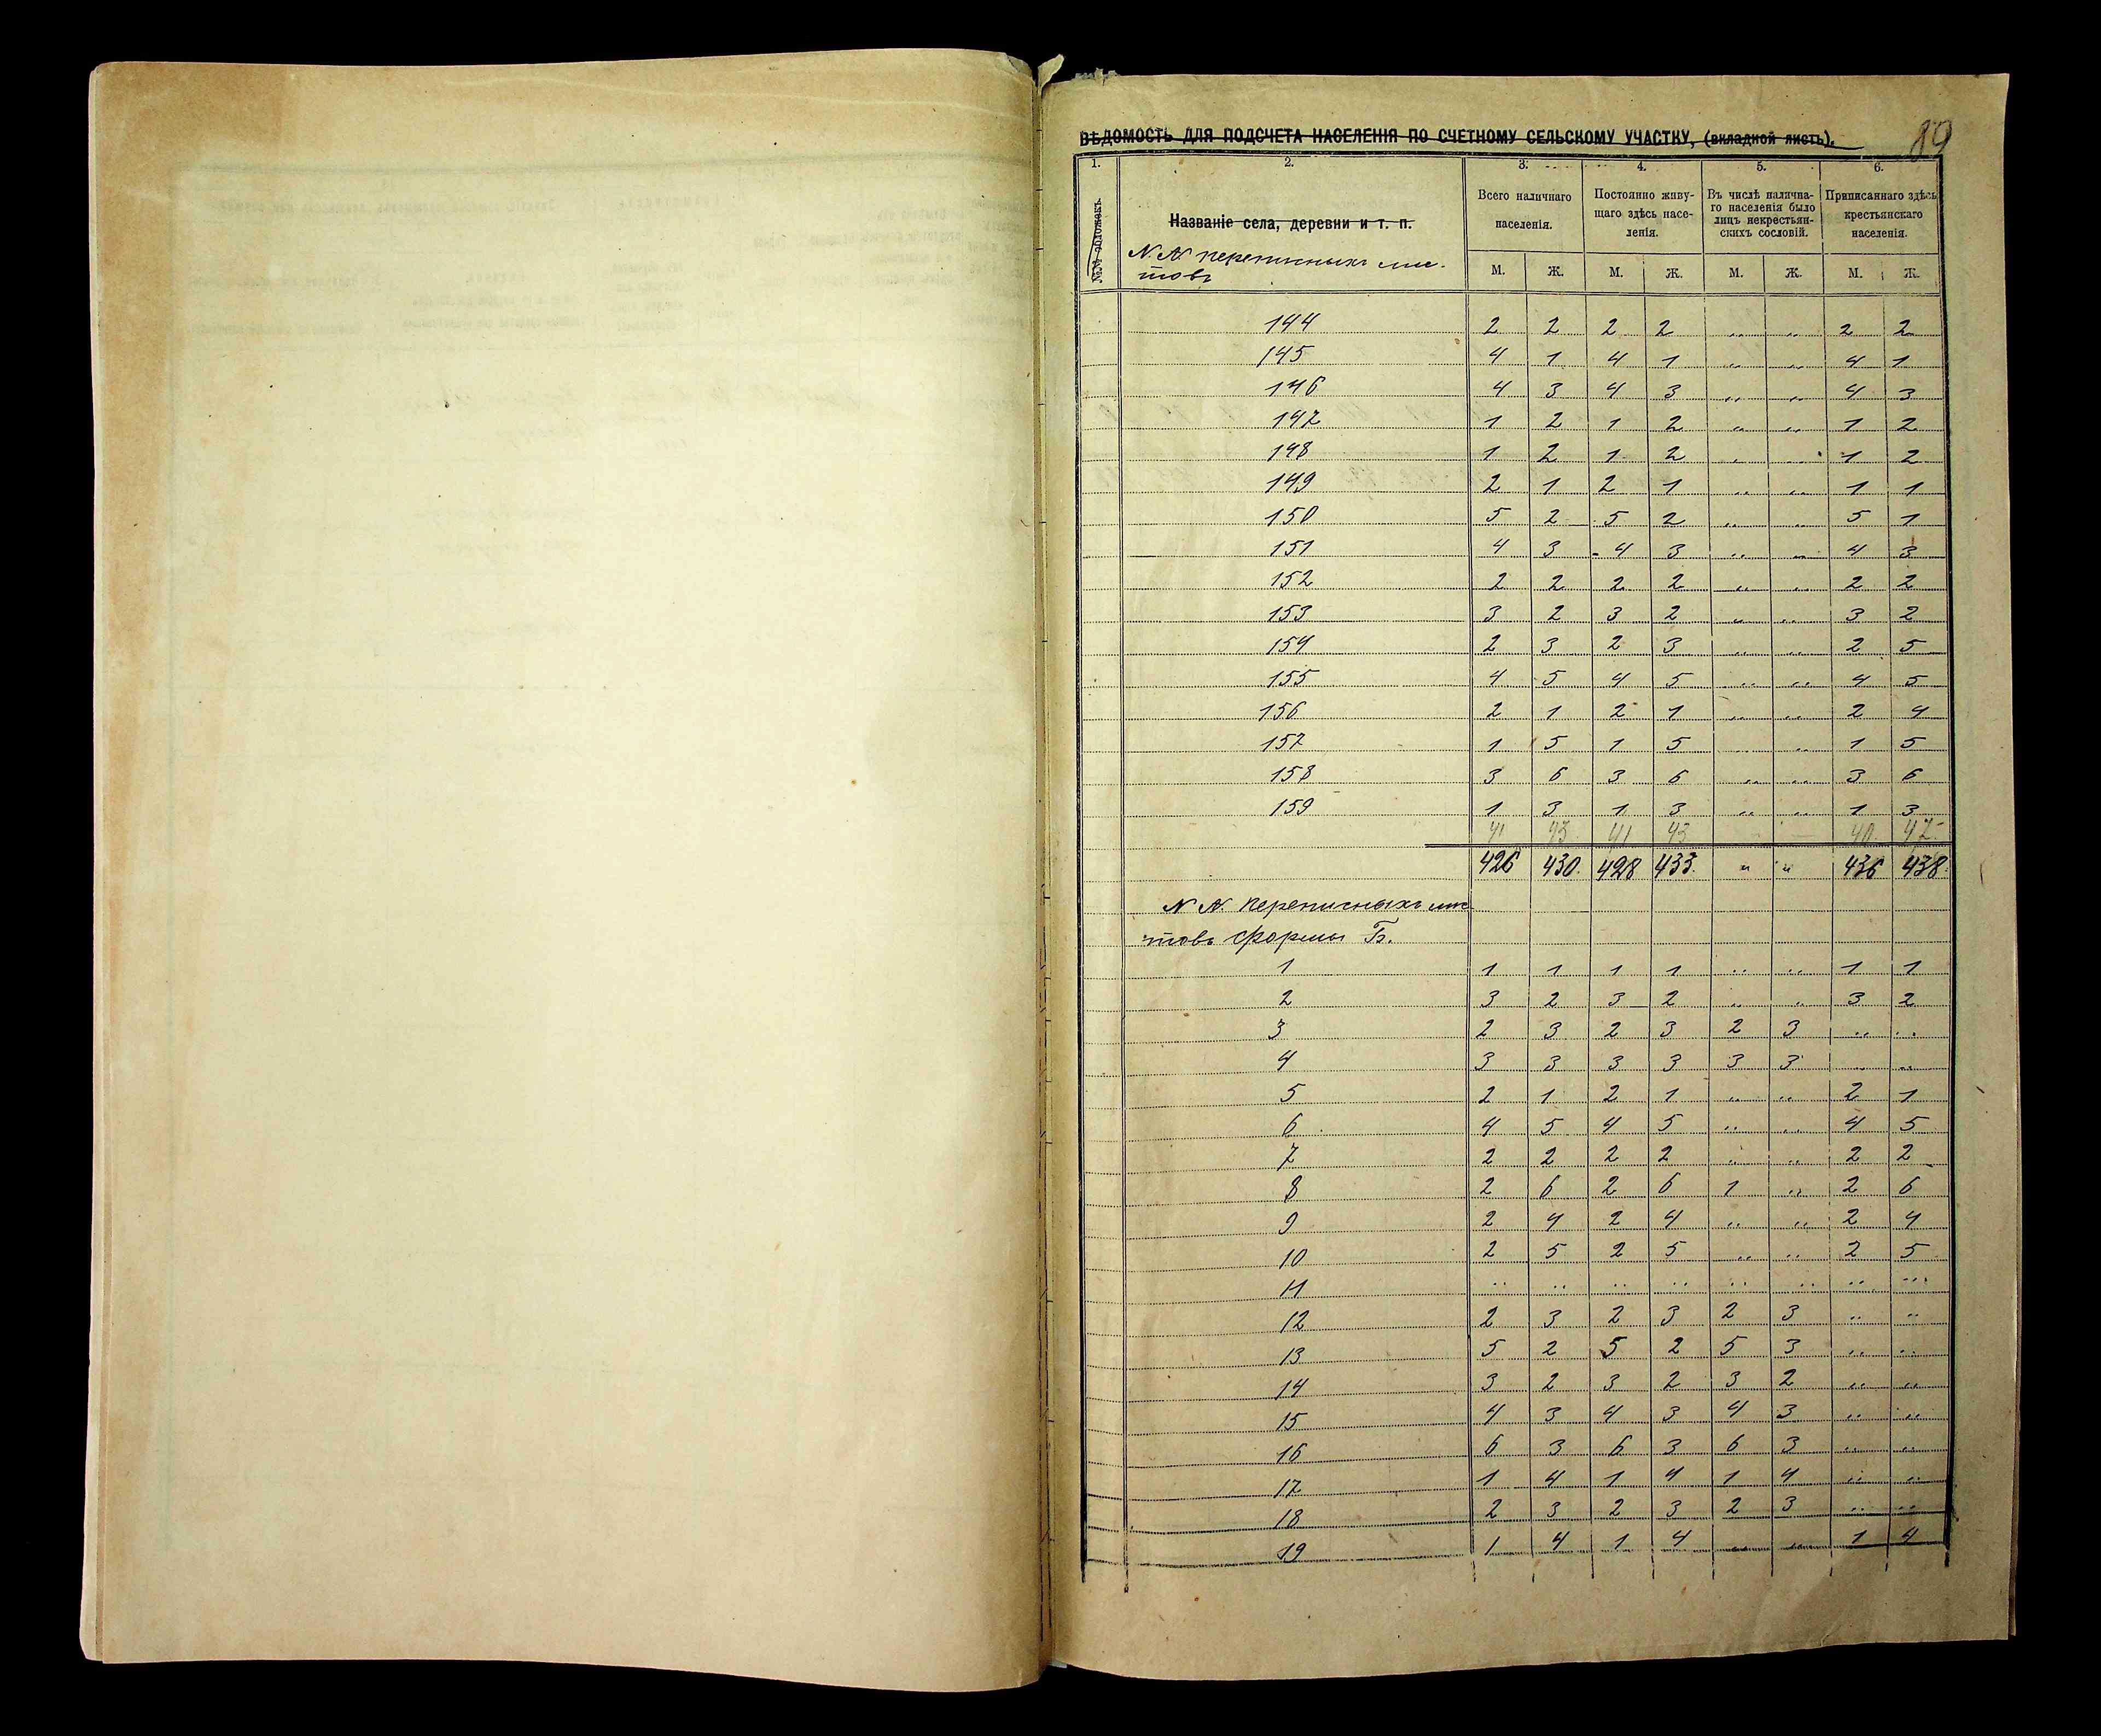 89
ВѢДОМОСТЬ ДЛЯ ПОДСЧЕТА НАСЕЛЕНІЯ ПО СЧЕТНОМУ СЕЛЬСКОМУ УЧАСТКУ, (вкладной листъ).
1. 2. 3. 4. 5. 6.
№№ обложекъ.
Названіе села, деревни и т. п.
N. N переписныхъ лис-
товъ
Всего наличнаго
населенія.
Постоянно живу-
щаго здѣсь насе-
ленія.
Въ числѣ налична-
го населенія было
лицъ некрестьян-
скихъ сословій.
Приписаннаго здѣсь
крестьянскаго
населенія.
М. Ж. М. Ж. М. Ж. М. Ж.
144 2 2 2 2 „ „ 2 2
145 4 1 4 1 „ „ 4 1
146 4 3 4 3 „ „ 4 3
147 1 2 1 2 „ „ 1 2
148 1 2 1 2 „ „ 1 2
149 2 1 2 1 „ „ 1 1
150 5 2 5 2 „ „ 5 1
151 4 3 4 3 „ „ 4 3
152 2 2 2 2 „ „ 2 2
153 3 2 3 2 „ „ 3 2
154 2 3 2 3 „ „ 2 5
155 4 5 4 5 „ „ 4 5
156 2 1 2 1 „ „ 2 4
157 1 5 1 5 „ „ 1 5
158 3 6 3 6 „ „ 3 6
159 1 3 1 3 „ „ 1 3
41 43 41 43 40 47
426 430. 428 433. „ „ 436 438.
N N. переписныхъ лис
товъ формы Б.
1 1 1 1 1 „ „ 1 1
2 3 2 3 2 „ „ 3 2
3 2 3 2 3 2 3 „ „
4 3 3 3 3 3 3 „ „
5 2 1 2 1 „ „ 2 1
6 4 5 4 5 „ „ 4 5
7 2 2 2 2 „ „ 2 2
8 2 6 2 6 1 „ 2 6
9 2 4 2 4 „ „ 2 4
10 2 5 2 5 „ „ 2 5
11 „ „ „ „ „ „ „ „
12 2 3 2 3 2 3 „ „
13 5 2 5 2 5 3 „ „
14 3 2 3 2 3 2 „ „
15 4 3 4 3 4 3 „ „
16 6 3 6 3 6 3 „ „
17 1 4 1 4 1 4 „ „
18 2 3 2 3 2 3 „ „
19 1 4 1 4 „ „ 1 4